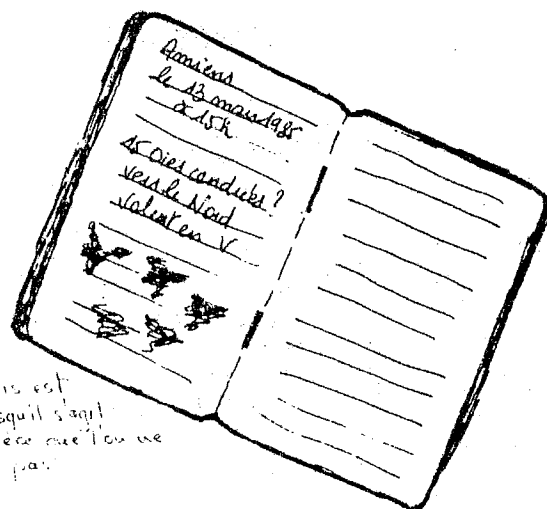 Amiens
le 13 mars 1985
à 15h
15 Oies cendrées ?
vers le Nord
Volent en V
est
s'agit
que l'on ne
pas